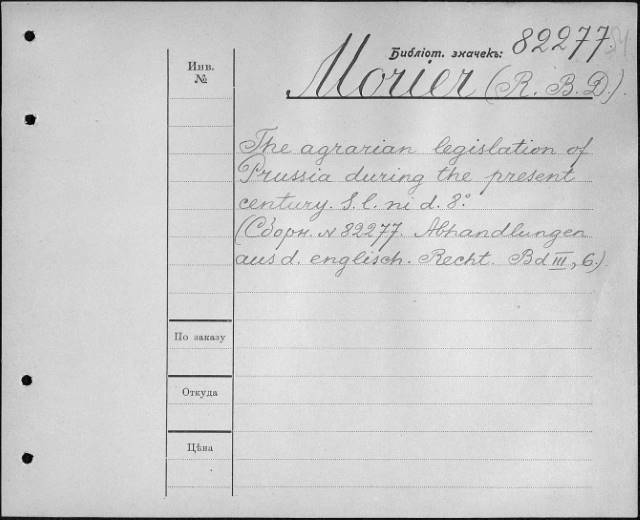 Библіот. значекъ: 82277
Инв. №
Morier (R. B. D.).
The agrarian legislation of
Prussia during the present
century. S. l. ni d. 8°.
(Сборн. № 82277. Abhandlungen
aus d. englisch. Recht. Bd III, 6.)
По заказу
Откуда
Цѣна